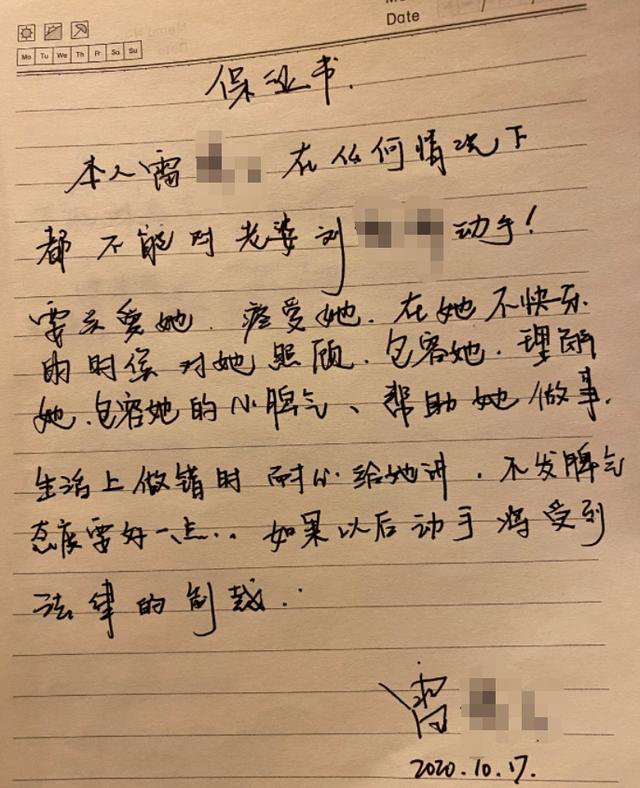 Date
Mo Tu We Th Fr Sa Su
保证书.
本人雷 在任何情况下
都不能对老婆刘 动手!
要关爱她.疼爱她.在她不快乐
的时候对她照顾.包容她.理解
她.包容她的小脾气、帮助她做事.
生活上做错时耐心给她讲.不发脾气
态度要好一点... 如果以后动手将受到
法律的制裁..
雷
2020.10.17.